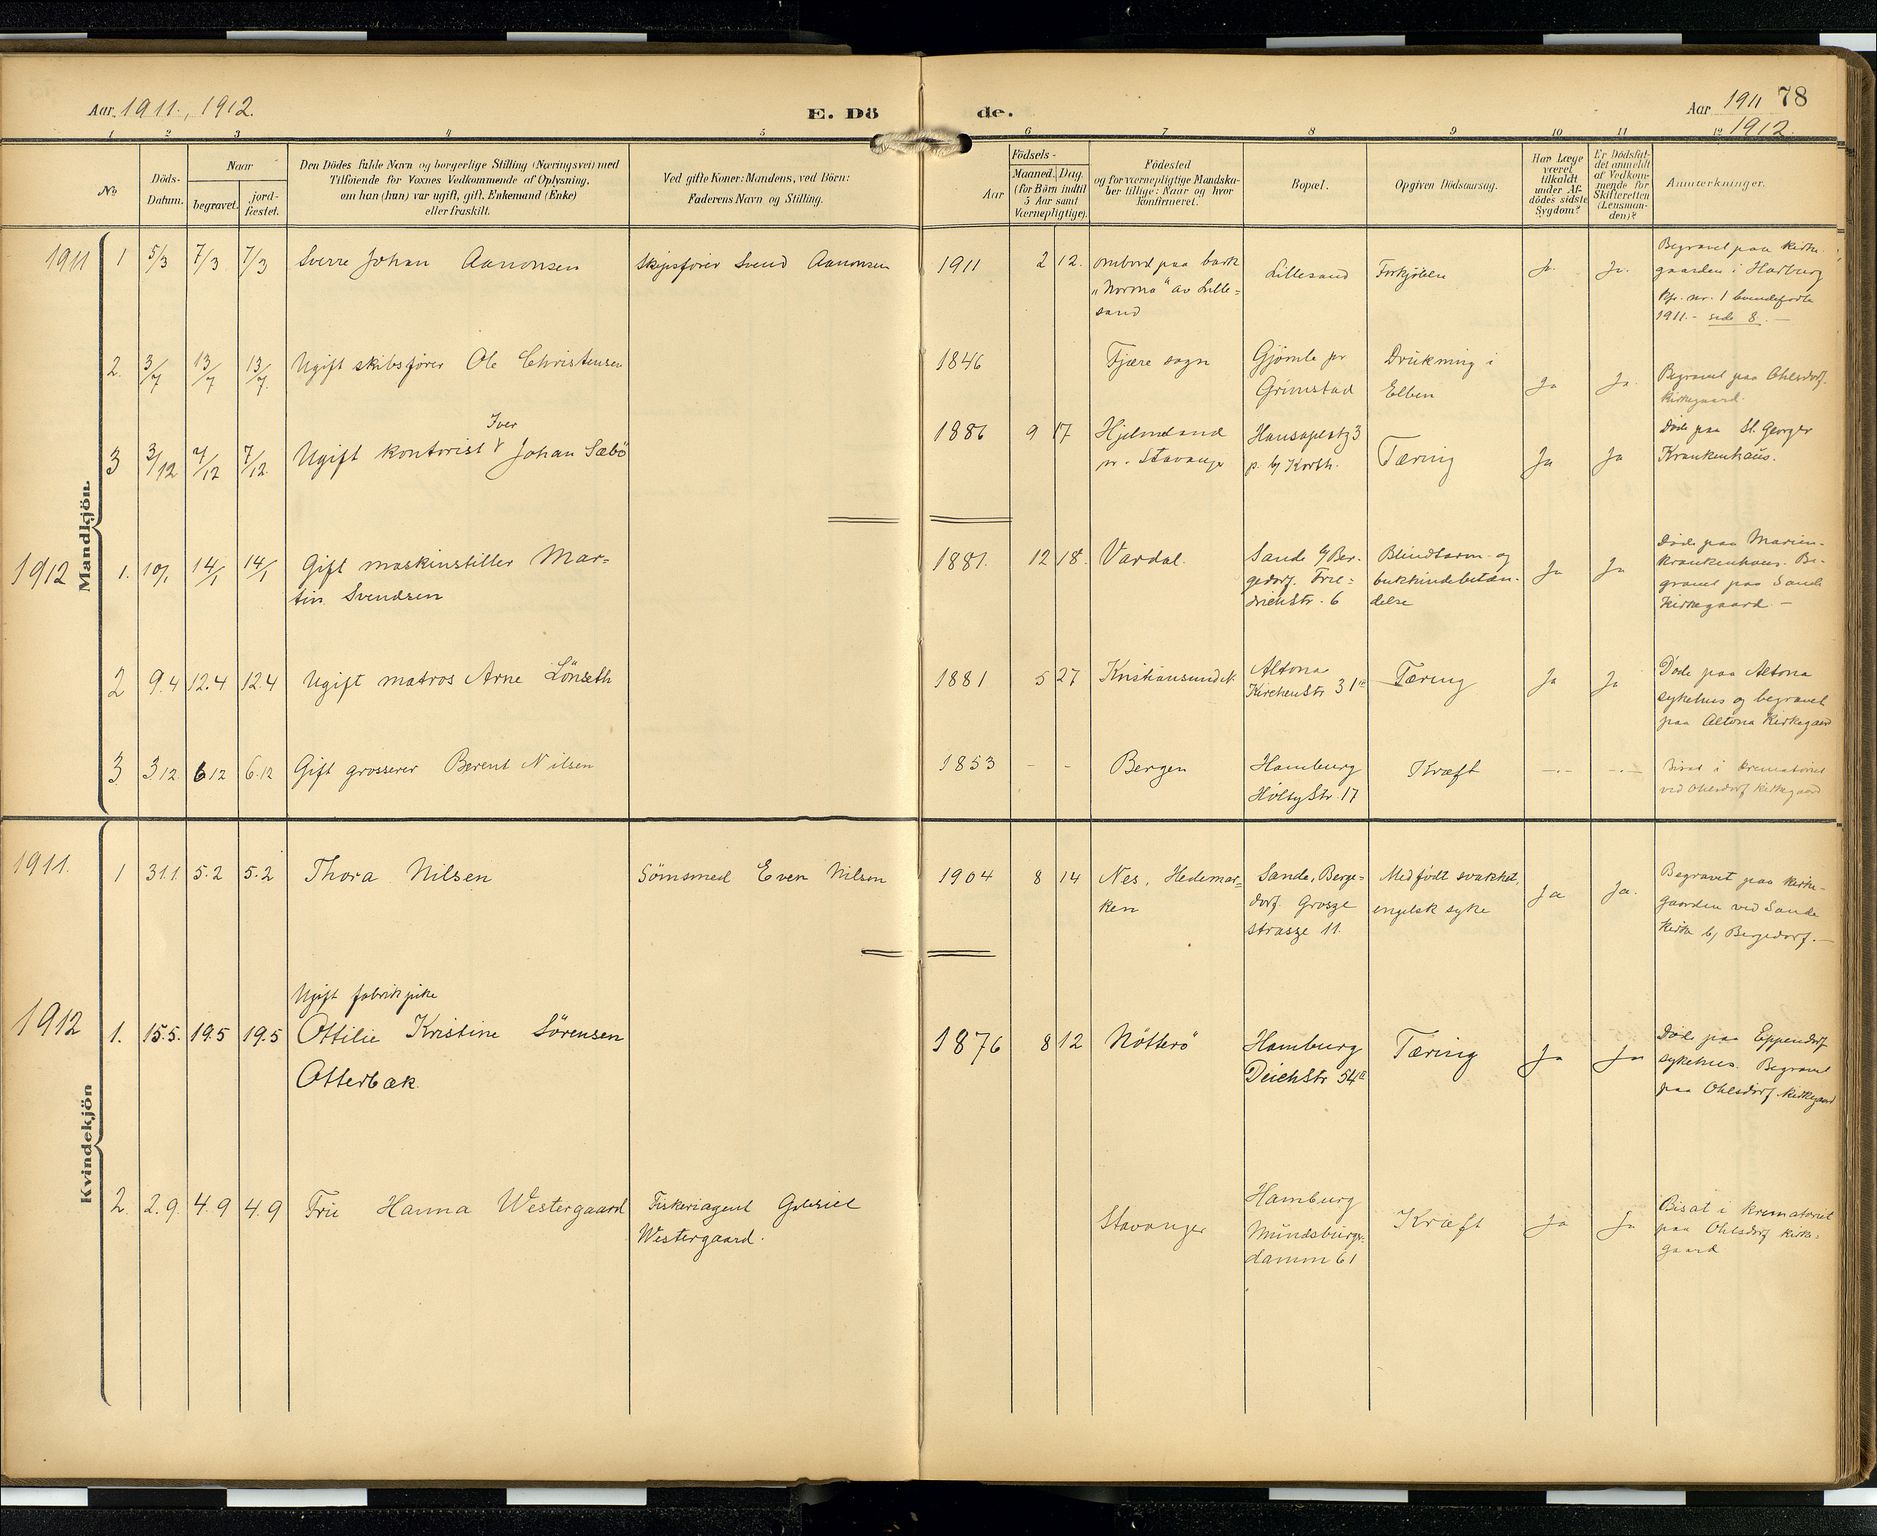 Aar 1911, 1912.
E. Dö
de.
Aar 1911 78
1912.
1 2 3 4 5 6 7 8 9 10 11 12
No
Döds-
Datum.
Naar
begravet.
jord-
fæstet.
Den Dödes fulde Navn og borgerlige Stilling (Næringsvei) med
Tilföiende for Voxnes Vedkommende af Oplysning,
om han (hun) var ugift, gift, Enkemand (Enke)
eller fraskilt.
Ved gifte Koner: Mandens, ved Börn:
Faderens Navn og Stilling.
Födsels-
Aar
Maaned. Dag.
(for Börn indtil
5 Aar samt
Værnepligtige).
Födested
og for værnepligtige Mandska-
ber tillige: Naar og hvor
konfirmeret.
Bopæl.
Opgiven Dödsaarsag.
Har Læge
været
tilkaldt
under Af-
dödes sidste
Sygdom?
Er Dödsfal-
det anmeldt
af Vedkom-
mende for
Skifteretten
(Lensman-
den)?
Anmærkninger.
Mandkjön.
1911 1 5/3 7/3 7/3 Sverre Johan Aanonsen Skipsfører Svend Aanonsen 1911 2 12. ombord paa bark
"Norma" av Lille=
sand
Lillesand Ja. Ja.
Begravet paa kirke-
gaarden i Harburg
1911.- side 8. -
2. 3/7 13/7 13/7. Ugift skibsfører Ole Christensen 1846 Fjære sogn Gjömle pr
Grimstad
Drukning i
Elben
Ja Ja.
Begravet paa Ohlsdorf
kirkegaard.
Iver
3 3/12 7/12 7/12. Ugift kontorist Johan Sæbö 1886 9 17
pr. Stavanger
Hansaplatz 3
Tæring Ja Ja
Døde paa St. Georger
Krankenhaus.
1912 1. 10/1 14/1 14/1 Gift maskinstiller Mar-
tin Svendsen
1881. 12 18. Vardal. Sande b/ Ber-
gedorf. Frie-
drichstr. 6
Blindtarm- og
bukhindebetæn-
delse
Ja Ja
Døde paa Marien-
krankenhaus. Be-
gravet paa Sande
Kirkegaard. -
2 9.4 12.4 12.4 Ugift matros Arne Lönseth 1881 5 27 Kristiansund N. Altona
Kirchenstr 31
Tæring Ja Ja
Døde paa Altona
sykehus og begravet
paa Altona Kirkegaard
3 3 12 6 12 6.12 Gift grosserer Berent Nilsen 1853 - - Bergen Hamburg
Höltystr. 17
Kræft -.- -.-
Bisat i krematoriet
ved Ohlsdorf Kirkegaard
Kvindekjön
1911. 1 31.1 5.2 5.2 Thora Nilsen Sömsmed Even Nilsen 1904 8 14 Nes, Hedemar-
ken
Sande, Berge-
dorf. Grosze
strasze 11.
Medfödt svakhet,
engelsk syke
Ja Ja.
Begravet paa kirke-
gaarden ved Sande
kirke b/ Bergedorf. -
Ugift fabrikpike
1912 1. 15.5. 19.5 19.5 Ottilie Kristine Sörensen
Otterbæk.
1876 8 12 Nötterö Hamburg
Deichstr 54
Tæring Ja Ja
Døde paa Eppendorf
sykehus. Begravet
paa Ohlsdorf kirkegaard
2. 2.9. 4.9 4.9 Hanna Westergaard Fiskeriagent Gabriel
Westergaard.
Stavanger Hamburg
Mundsburger-
damm 61
Kræft Ja Ja
Bisat i krematoriet
paa Ohlsdorf kirke-
gaard